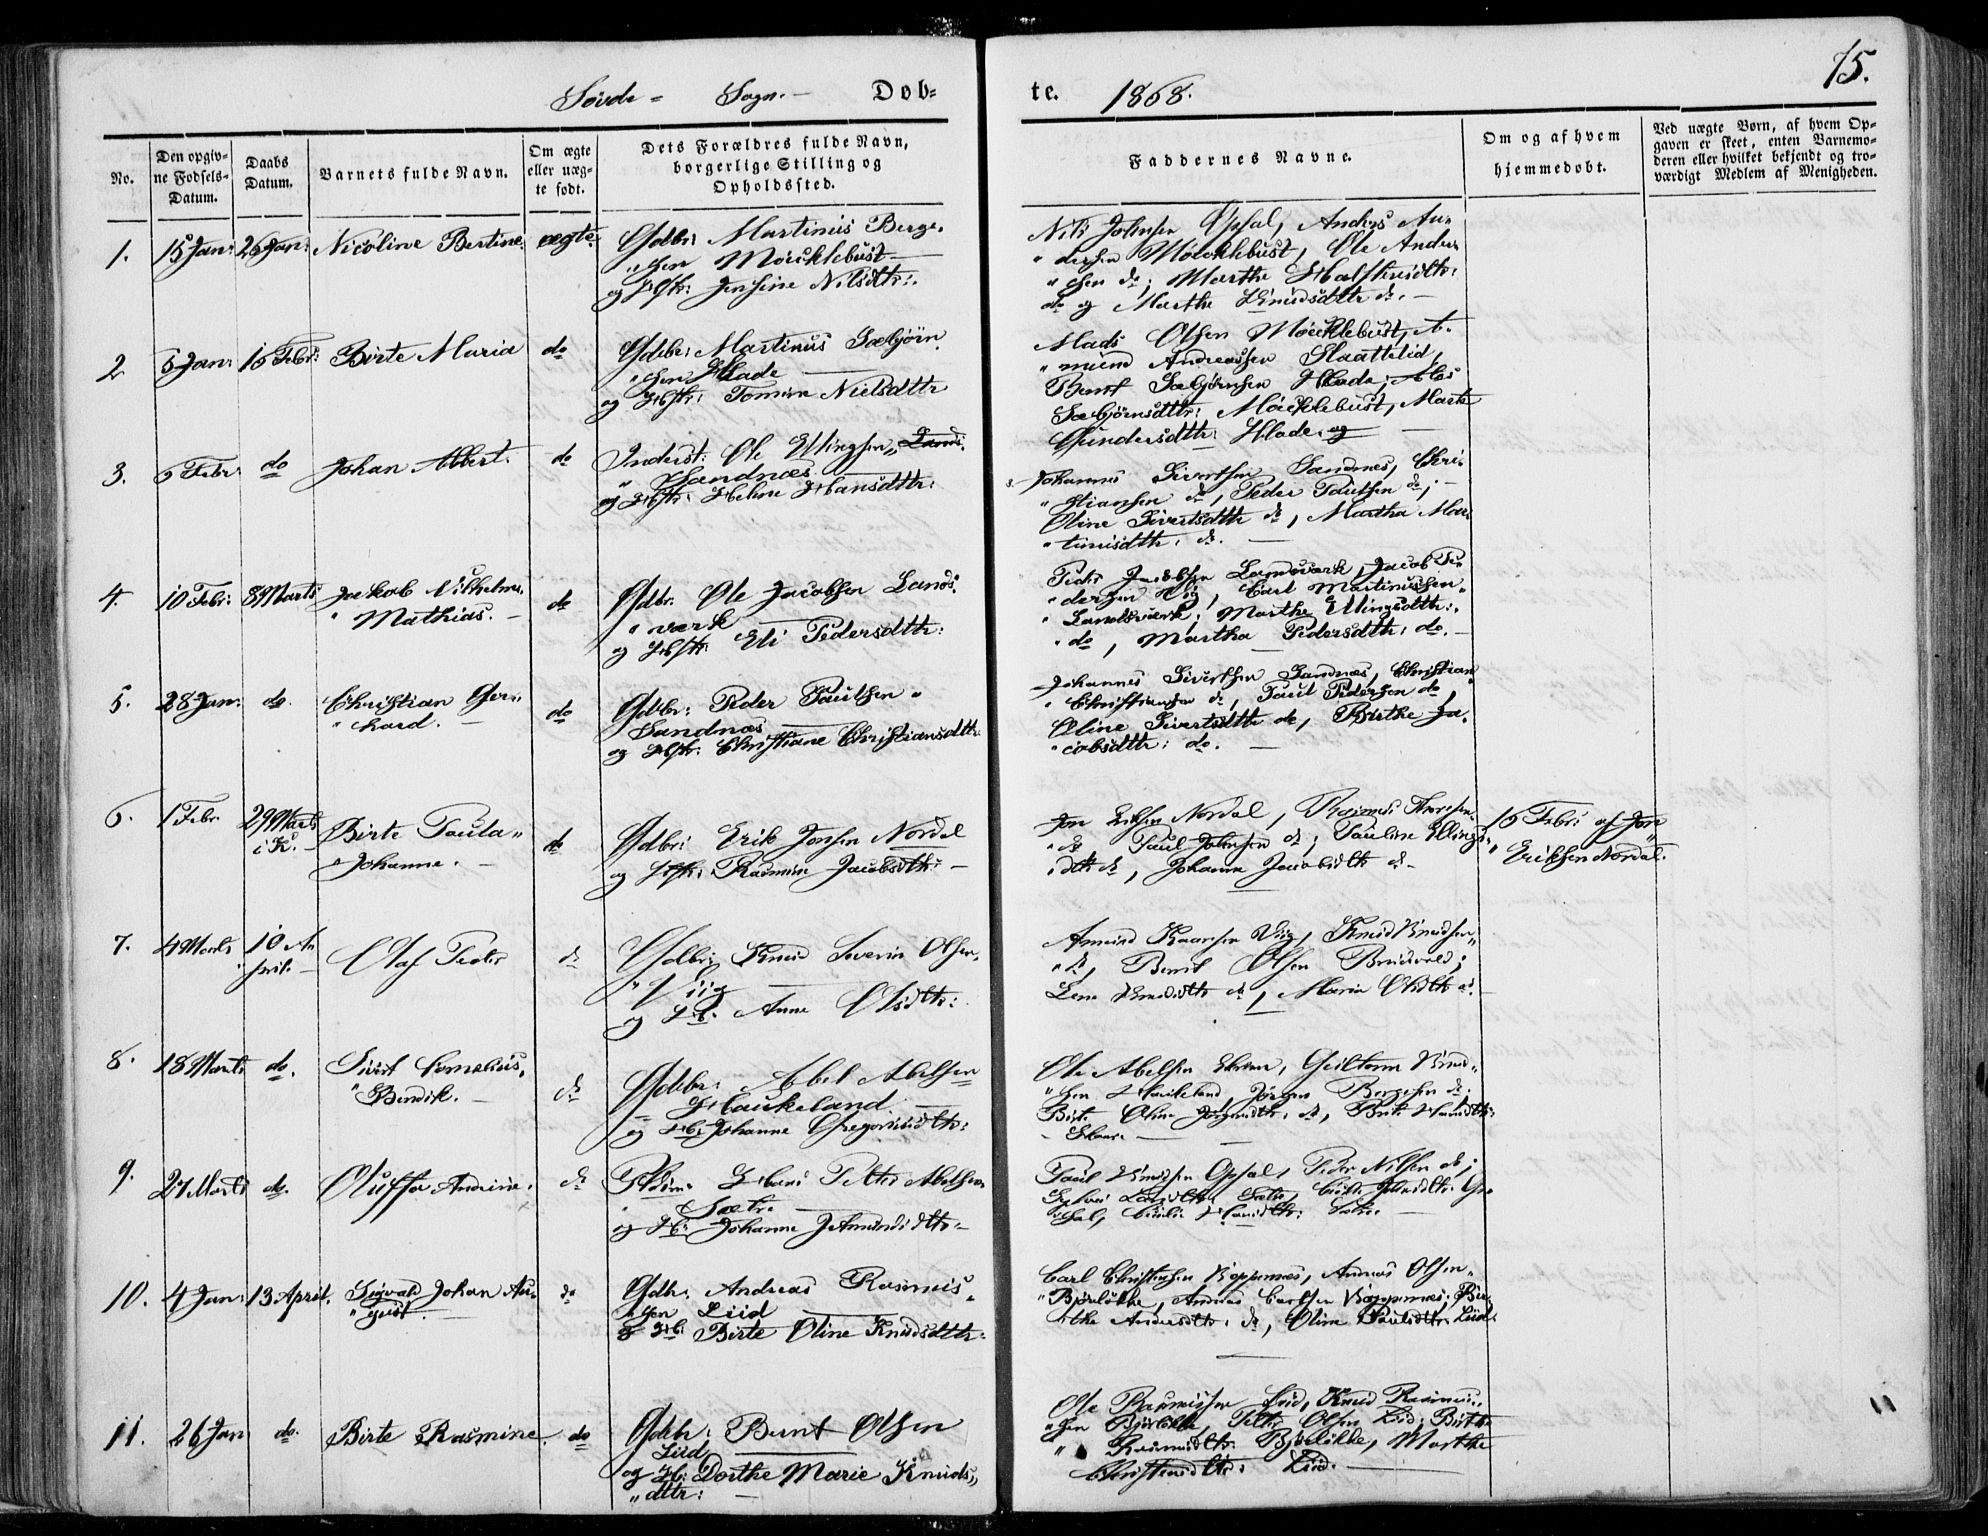 15.
Søvde = Sogn. — Døb=
te. 1868.
No.
Den opgiv-
ne Fødsels-
Datum.
Daabs
Datum.
Barnets fulde Navn.
Om ægte
eller uæg-
te født.
Dets Forældres fulde Navn,
borgerlige Stilling og
Opholdssted.
Faddernes Navne.
Om og af hvem
hjemmedøbt.
Ved uægte Børn, af hvem Op-
gaven er skeet, enten Barnemo-
deren eller hvilket bekjendt og tro-
værdigt Medlem af Menigheden.
1. 15 Jan: 26 Jan: Nicoline Bertine ægte
Gdbr: Martinus Berge-
"sen Möcklebust
og Hstr: Jensine Nilsdtr:
Nils Johnsen Opsal, Anders An-
"dersen Möcklebust, Ole Ander-
"sen do; Marthe
do og Marthe Knudsdttr do.
2. 5 Jan: 16 Febr: Birte Maria do
Gdbr: Martinus Sæbjörn
"sen Hlade
og Hstr: Tomine Nielsdttr
Mads Olsen Möcklebust, A-
"mund Andreassen Slaattelid,
Bernt Sæbjörnsen Hlade;
Sæbjörnsdttr: Möcklebust, Marte
Gundersdttr: Hlade. og
3. Febr: do Johan Albert. do
Inderst: Ole Ellingsen, Lands
"Sandnæs.
og Hstr: Helene Hansdttr:
Johannes Sivertsen Sandnæs, Chri-
"stiansen do, Peder Paulsen do;
Oline Sivertsdttr do, Martha Mar-
"tinusdttr. do.
4. 10 Febr: 8 Marts Jackob Vilhelm
"Mathias. do
Gdbr. Ole Jacobsen Lands-
"værk
og Hstr: Eli Pedersdttr:
Peder Jacobsen Landsværk, Jacob Pe-
"dersen Viig, Carl Martinussen
"Landsværk; Marthe Ellingsdttr:
"do, Martha Pedersdttr: do.
5. 28 Jan: do. Christian Ger-
"hard. do
Gdbr: Peder Paulsen
Sandnæs
og Hstr. Christiane Christiansdttr:
Johannes Sivertsen Sandnæs, Christian
"Christiansen do, Paul Pedersen do,
Oline Sivertsdttr do, Birthe Ja-
"cobsdttr: do.
6. 1 Febr. 29 Marts
i K.
Birte Paula
"Johanne. do
Gdbr: Erik Jonsen Nordal
og Hstr: Rasmine Jacobsdtr:
Jon Eriksen Nordal, Rasmus
"do Paul Johnsen do; Pauline Ellings-
dttr do, Johanne Jacobsdtr do
16 Febr: af Jon
"Eriksen Nordal.
7. 4 Marts 10 A-
pril.
Olaf Peder do
Gdbr: Knud Severin Olsen
"Viig
og Hb. Anne Olsdtr:
Amund Kaarsen Viig, Knud Knudsen
"do, Bernt Olsen
Lene Knudsdtr do, Maria Olsdtr do.
8. 18 Marts do. Sivert Cornelius
"Bendik. do
Gdbr: Abel Abelsen
Haukeland.
og Hb: Johanne Gregoriusdtr:
Ole Abelsen Knud-
"sen Haukeland, Jørgen Bergesen do;
Birte Oline Jørgensdtr. do,
9. 27 Marts do. Oluffa Andrine. do
Hans Peter Abelsen
Sætre
og Hb: Johanne Amundsdtr
Paul Knudsen Opsal, Peder Nilsen do;
10. 4 Jan: 13 April. Sigvald Johan Au-
"gust. do
Gdbr: Andreas Rasmus-
"sen Liid
& Hb: Birte Oline Knudsdttr:
Carl Christensen Koppernæs, Andreas Olsen
"Bjørløkke, Andreas Carlsen Koppernæs; Bir-
"the Andersdtr: do, Oline Paulsdtr: Liid.
11. 26 Jan do. Birte Rasmine. do
Gdbr: Bernt Olsen
Liid
og Hb: Dorthe Marie Knuds-
"dttr:
Ole Rasmussen Liid, Knud Rasmus-
"sen Bjørløkke, Peter Olsen Liid; Birthe
"Rasmusdtr: Bjørløkke, Marthe
Christensdtr: Liid.